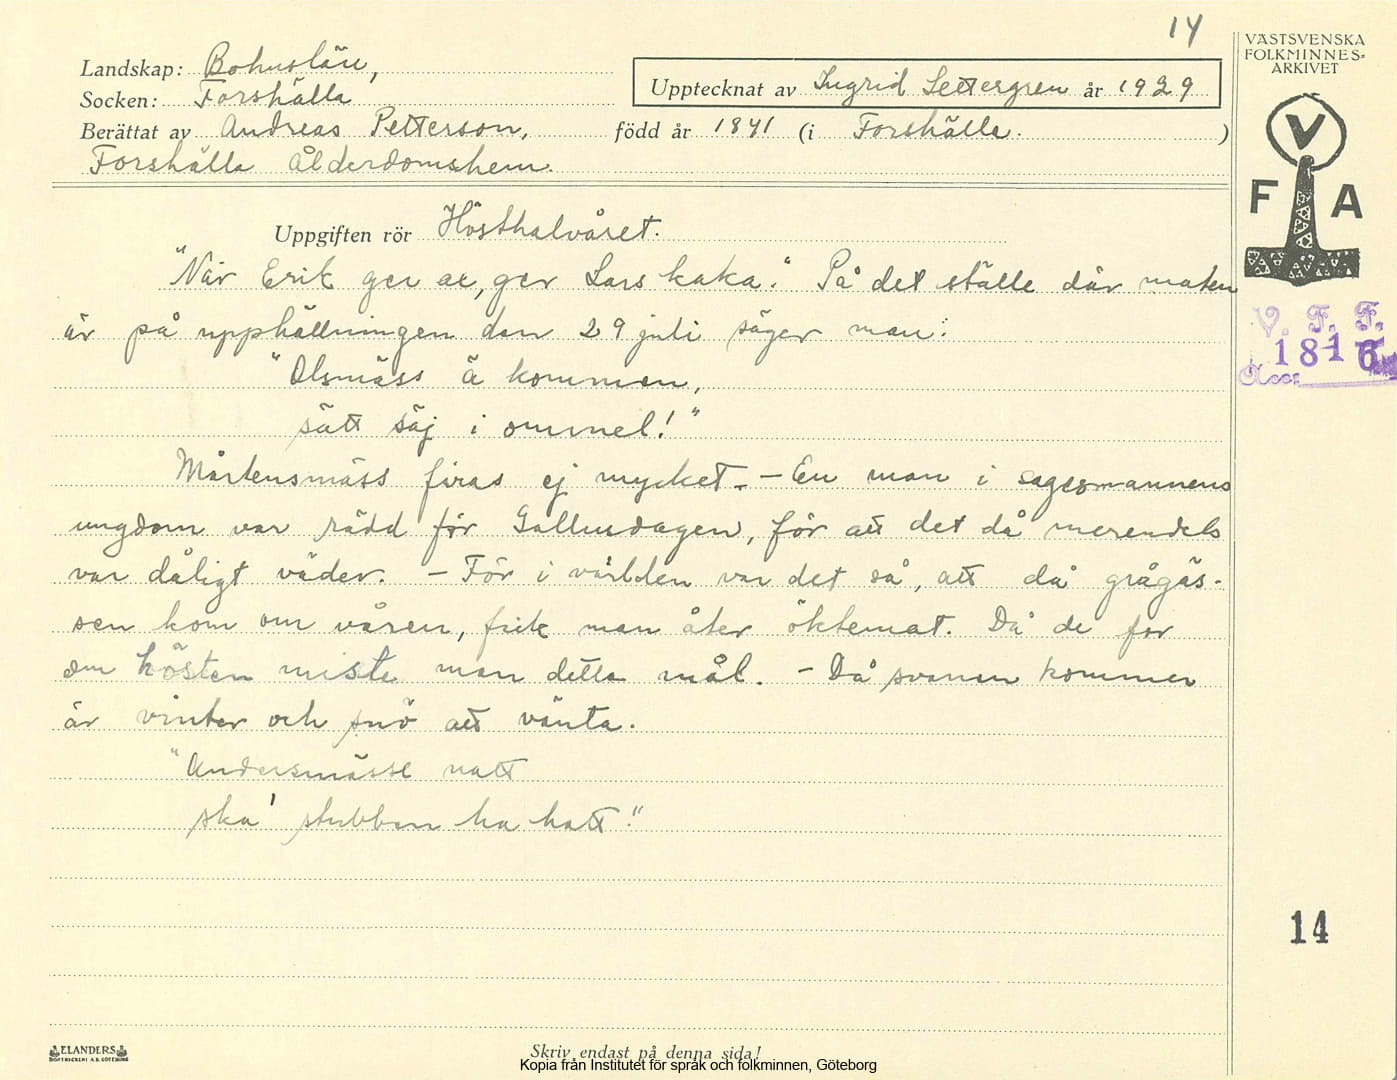 14
VÄSTSVENSKA
FOLKMINNES-
ARKIVET
Landskap: Bohuslän,
Socken: Forshälla
Upptecknat av Ingrid Settergren år 1929
Berättat av Andreas Petterson, född år 1841 (i Forshälla. )
Forshälla Ålderdomshem.
V
F A
Uppgiften rör Hösthalvåret.
"När Erik ger ax, ger Lars kaka." På det ställe där maten
är på upphällningen den 29 juli säger man:
"Olsmäss ä kommen,
sätt säj i ommel!"
Mårtensmäss firas ej mycket. – En man i sagesmannens
ungdom var rädd för Gallusdagen, för att det då merendels
var dåligt väder. – För i världen var det så, att då grågäs-
sen kom om våren, fick man åter öktemat. Då de for
om hösten miste man detta mål. – Då svanen kommer
är vinter och snö att vänta.
"Andersmässe natt
ska' stubben ha hatt."
V. F. F.
1816
Acc:
14
ELANDERS
BOKTRYCKERI A.B. GÖTEBORG
Skriv endast på denna sida!
Kopia från Institutet för språk och folkminnen, Göteborg